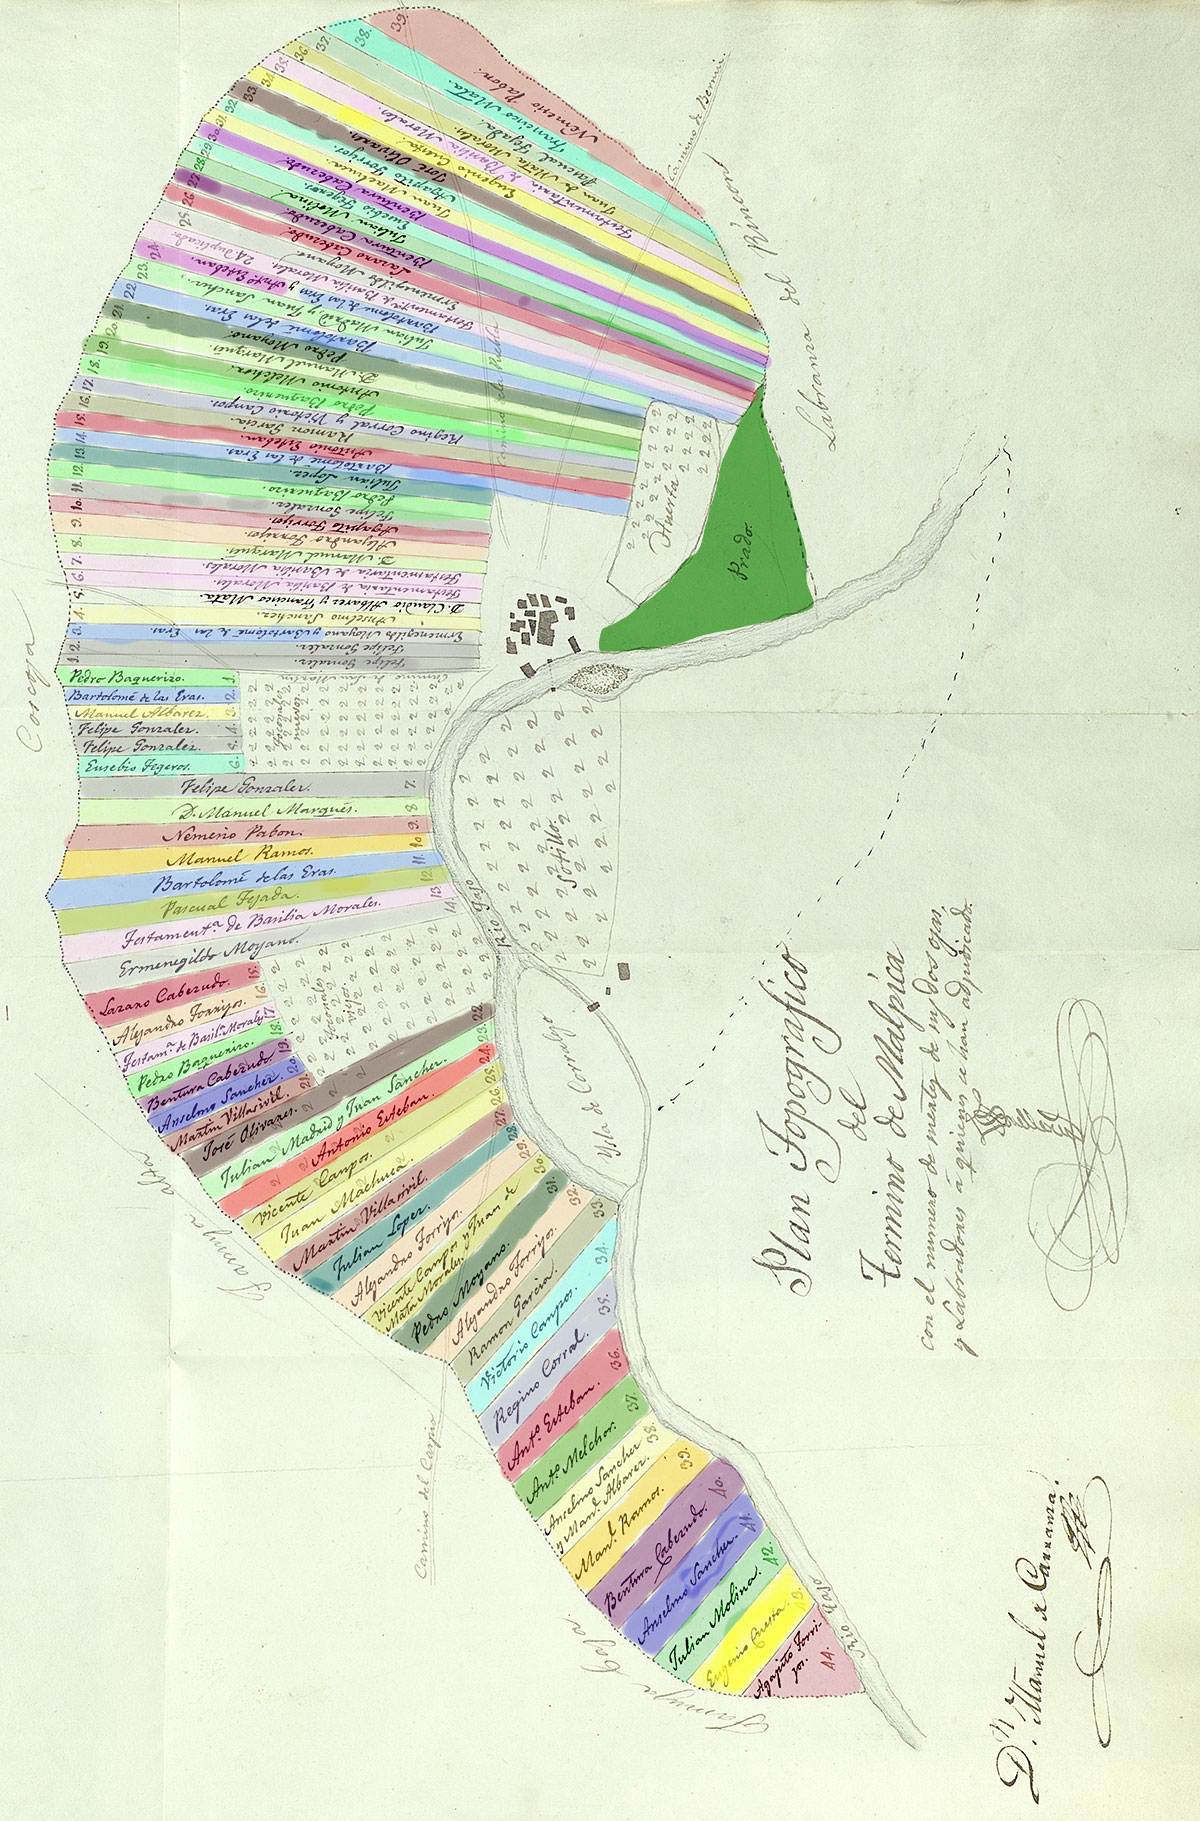 Plan Topografico
del
Termino de Malpica
con el numero de suertes de
y Labradores á quienes se han adjudicado.
Dn. Manuel de Carranza.
Labranza del Rincon
Camino de Bernui.
Camino de la Puebla
Coscoja
Prado.
Huerta
Sotillo.
Rio Tajo
Ysla de Corralejo
Camino de San Martin
Toconales nuevos
Toconales viejos.
Jamuja alta
Camino del Carpio
Jamuja baja.
Rio Tajo
39. Nemesio Pabon.
38. Francisco Mata.
37. Pascual Tejada.
36. Juan de Mata Morales.
35. Testamentaria de Basilia Morales.
34. Eugenio Cuesta.
33. José Olivares.
32. Agapito Torrijos.
31. Juan Machuca.
30. Bentura Caberudo.
29. Eusebio Tegeros.
28. Julian Molina.
27. Bentura Caberudo.
26. Lazaro Caberudo.
25. Ermenegildo Moyano.
Testamentra. de Basilia Morales. 24 Duplicado.
24. Bartolomé de las Eras y Anto. Esteban.
23. Julian Madrid y Juan Sanchez.
22. Bartolomé de las Eras.
21. Pedro Moyano.
20. D. Manuel Marqués.
19. Antonio Melchor.
18. Pedro Baquerizo.
17. Regino Corral y Victorio Campos.
16. Ramon Garcia.
15. Antonio Esteban.
14. Bartolomé de las Eras.
13. Julian Lopez.
12. Pedro Baquerizo.
11. Felipe Gonzalez.
10. Agapito Torrijos.
9. Alejandro Torrijos.
8. D. Manuel Marqués.
7. Testamentaria de Basilia Morales.
6. Testamentaria de Basilia Morales.
5. D. Claudio Albarez y Francisco Mata.
4. Anselmo Sanchez.
3. Ermenegildo Moyano y Bartolomé de las Eras.
2. Felipe Gonzalez.
1. Felipe Gonzalez.
Pedro Baquerizo. 1.
Bartolomé de las Eras. 2.
Manuel Albarez. 3.
Felipe Gonzalez. 4.
Felipe Gonzalez. 5.
Eusebio Tegeros. 6.
Felipe Gonzalez. 7.
D. Manuel Marqués. 8
Nemesio Pabon. 9.
Manuel Ramos. 10
Bartolomé de las Eras. 11.
Pascual Tejada. 12
Testamenta. de Basilia Morales. 13
Ermenegildo Moyano. 14.
Lazaro Caberudo. 15.
Alejandro Torrijos. 16.
Testama. de Basila. Morales 17.
Pedro Baquerizo. 18.
Bentura Caberudo 19.
Anselmo Sanchez. 20
Martin Villasivil. 21.
José Olivares. 22.
Julian Madrid y Juan Sanchez. 23.
Antonio Esteban. 24.
Vicente Campos. 25.
Juan Machuca. 26.
Martin Villasivil. 27.
Julian Lopez. 28.
Alejandro Torrijos. 29.
Vicente Campos y Juan de
Mata Morales. 30
Pedro Moyano. 31.
Alejandro Torrijos. 32.
Ramon Garcia. 33.
Victorio Campos. 34.
Regino Corral. 35.
Anto. Esteban. 36.
Anto. Melchor. 37.
Anselmo Sanchez
y Manl. Albarez. 38.
Manl. Ramos. 39.
Bentura Caberudo. 40.
Anselmo Sanchez. 41.
Julian Molina. 42.
Eugenio Cuesta. 43.
Agapito Torri-
jos. 44.